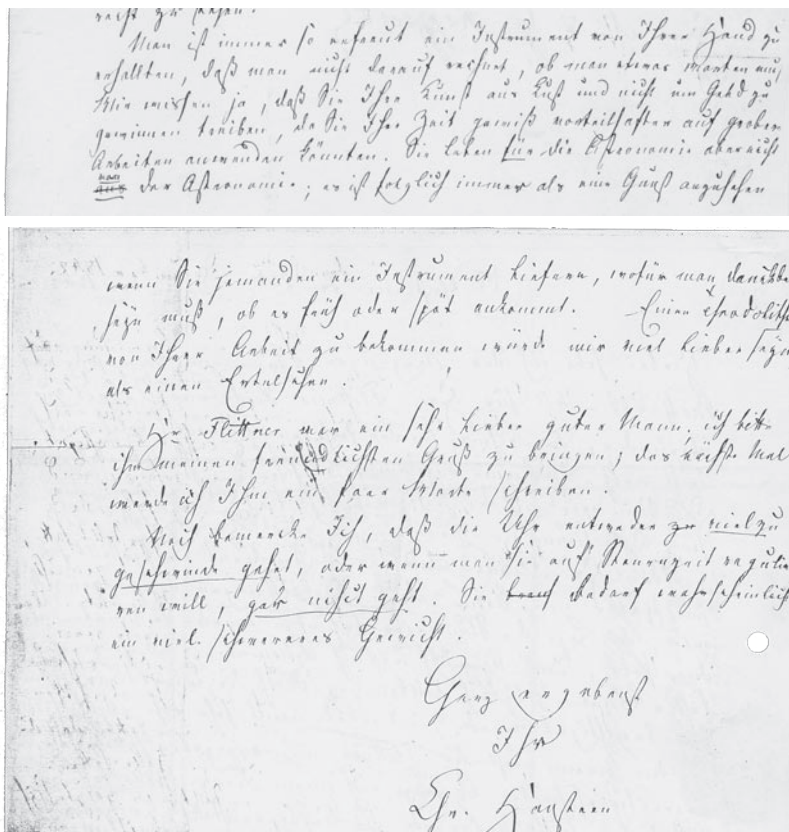 recht zu sehen.
Man ist immer so erfreut ein Instrument von Ihrer Hand zu
erhallten, daß man nicht darauf rechnet, ob man etwas warten muß,
Wir wissen ja, daß Sie Ihre Kunst aus Lust und nicht um Geld zu
gewinnen treiben, da Sie Ihre Zeit gewiß vorteilhafter auf grober
Arbeiten anwenden könnten. Sie leben für die Astronomie aber nicht
von aus der Astronomie; es ist folglich immer als eine Gunst anzusehen
wenn Sie jemanden ein Instrument liefern, wofür man dankbar
seyn muß, ob es früh oder spät ankommt. Einen Theodolithen
von Ihrer Arbeit zu bekommen würde mir viel lieber seyn
als einen Ertelschen.
Hr Flittner war ein sehr lieber guter Mann, ich bitte
ihm meinen freundlichsten Gruß zu bringen; das nächste Mal
werde ich Ihm ein paar Worte schreiben.
Noch bemercke Ich, daß die Uhr entweder zu viel zu
geschwinde gehet, oder wenn man sie auf Sternzeit regulie
ren will, gar nicht geht. Sie bedarf wahrscheinlich
ein viel schwereres Gewicht.
Ganz ergebenst
Ihr
Chr. Hansteen